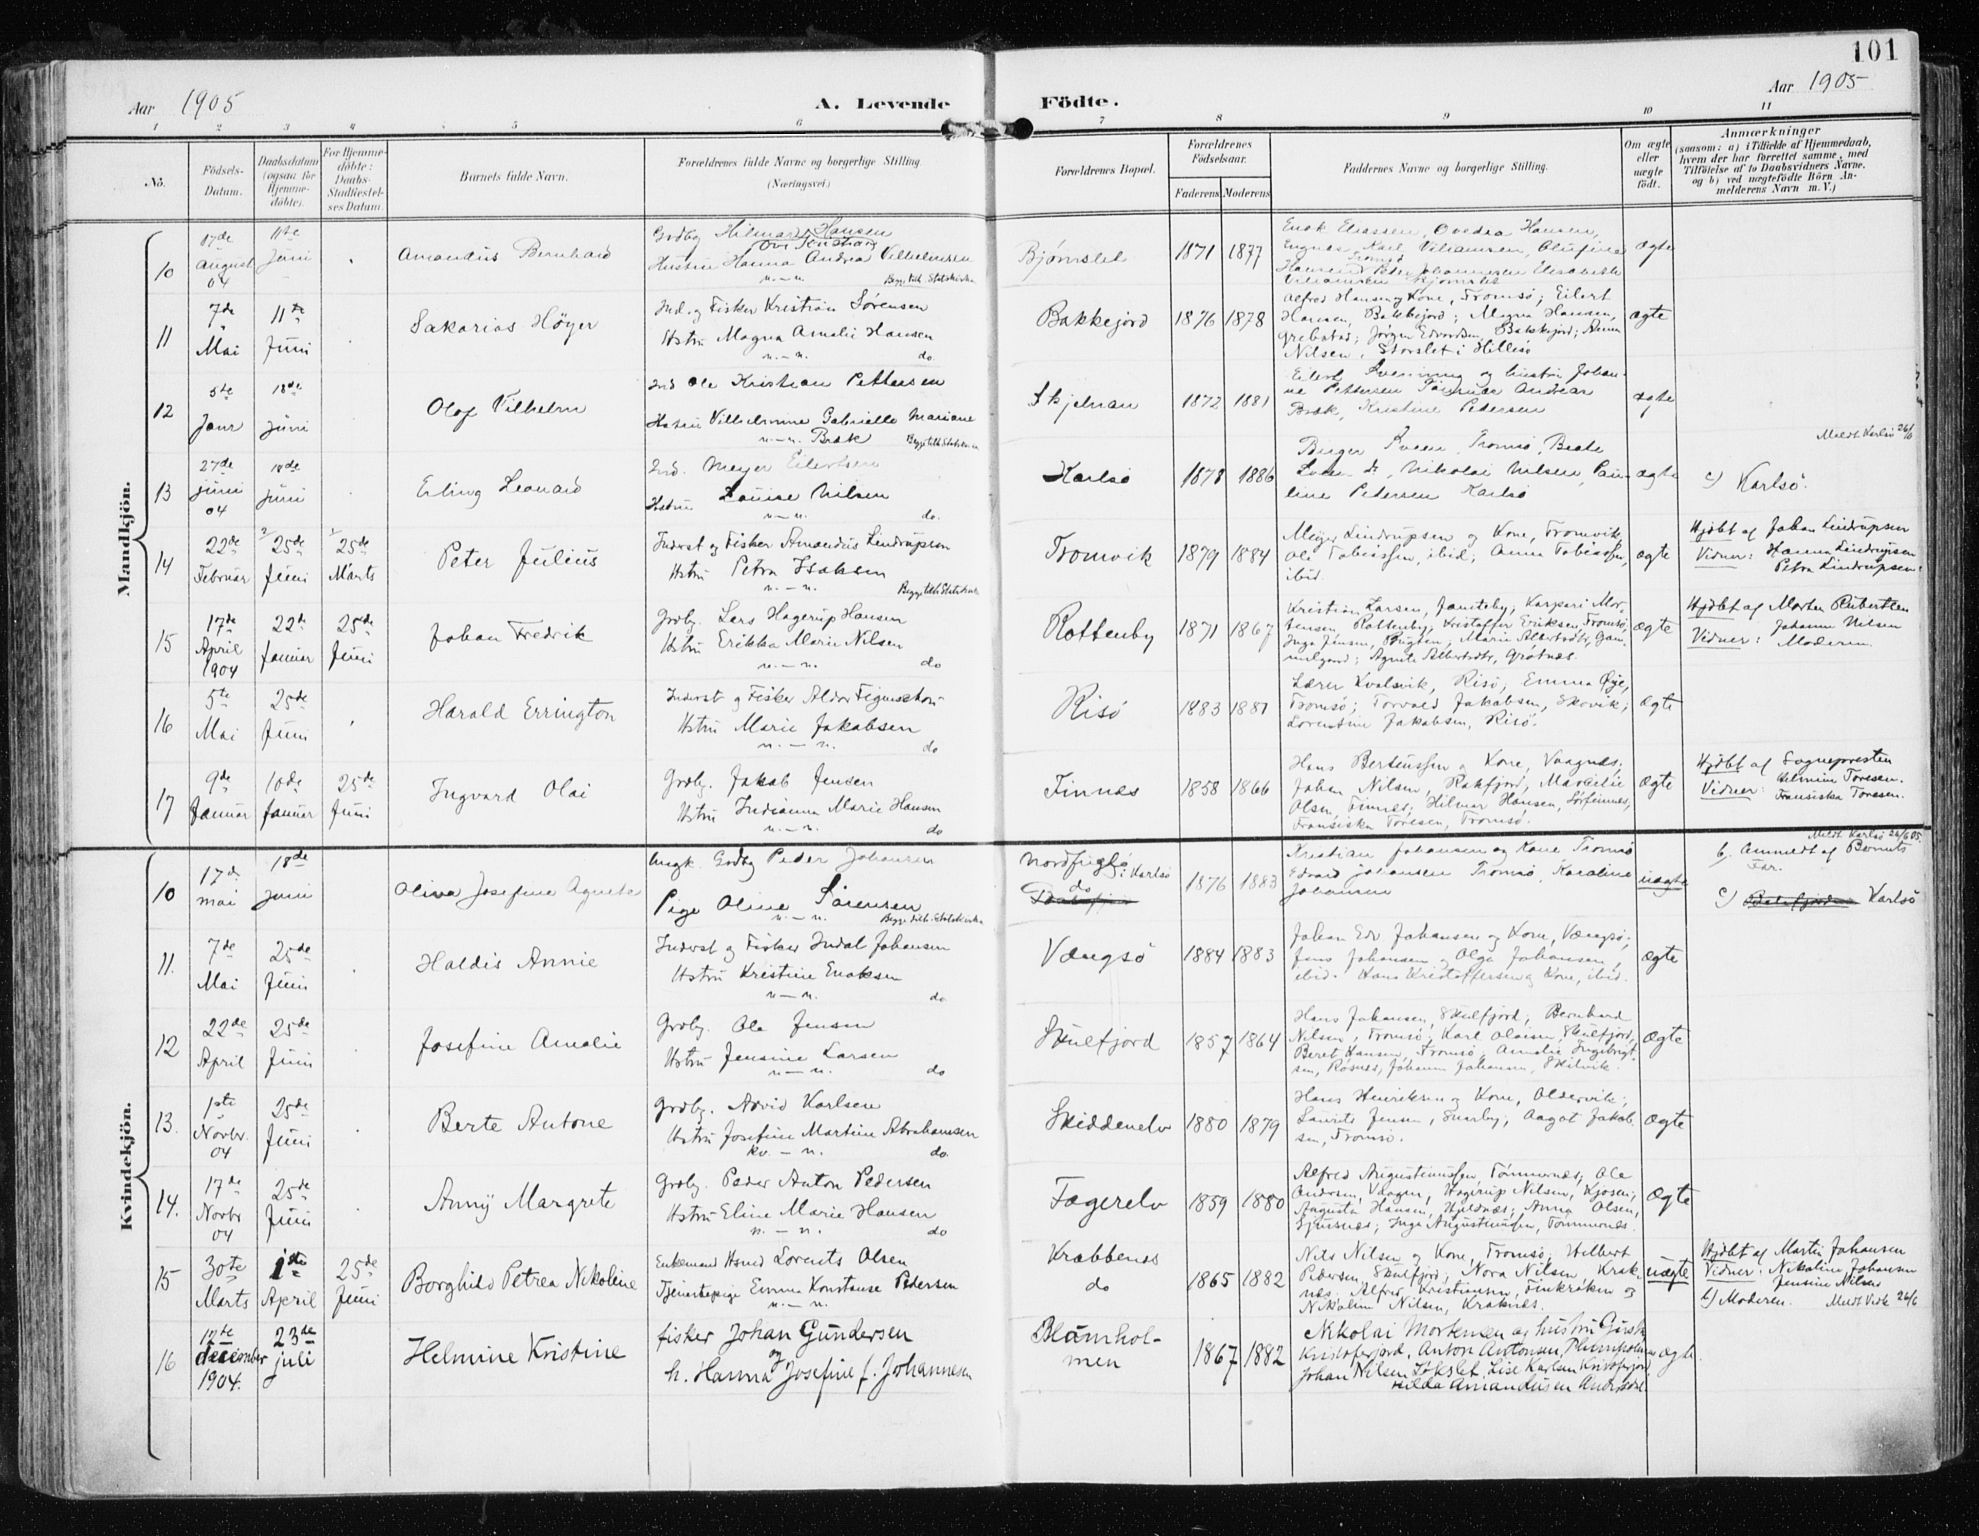 101
Aar 1905
A. Levende Födte.
Aar 1905
1 2 3 4 5 6 7 8 9 10 11
No.
Födsels-Datum.
Daabsdatum (ogsaa for Hjemme-döbte).
For Hjemme-döbte: Daabs-Stadfæstel-ses Datum.
Barnets fulde Navn.
Forældrenes fulde Navne og borgerlige Stilling. (Næringsvei.)
Forældrenes Bopæl.
Forældrenes Födselsaar.
Faderens Moderens
Faddernes Navne og borgerlige Stilling.
Om ægte eller uægte födt.
Anmærkninger
(saasom: a) i Tilfælde af Hjemmedaab,
hvem der har forrettet samme, med
Tilföielse af to Daabsvidners Navne.
og b) ved uægtefödte Börn An-
melderens Navn m. V.)
Mandkjön.
10
17de August 04
11te Juni
Amandus Bernhard
Grdbg Hilmar Hansen
Hustru Hanna Andrea Vilhelmsen
n.-n. Begge tilh. Statskirken
Bjørnslet
1871 1877
ægte
11
7de Mai
11te Juni
Sakarias Höyer
Ind. og Fisker Kristian Sørensen
Hstru Magna Amalie Hansen
n.-n. do.
Bakkejord
1876 1878
Alfred Hansen og Kone, Tromsö; Eilert
Hansen, Bakkejord; Magna Hansen,
Jörgen Edvardsen Bakkejord; Anna
Nilsen, Storslet i Hillesö
ægte
12
5te Janr
18de juni
Olaf Vilhelm
Ind Ole Kristian Pettersen
Hustru Vilhelmine Gabrielle Mariane
n.-n. Bræk Begge tilh. Statskirken
Skjelnan
1872 1881
Eilert og hustru Johan-
ne Pettersen Andreas
Bræk, Kristine Pedersen
ægte
13
27de juni 04
18de juni
Erling Leonard
Ind. Meyer Eilertsen
Hstru Louise Nilsen
n.-n. do.
Karlsö
1878 1886
Birger Sveen, Tromsö, Beate
Sveen do, Nikolai Nilsen, Pau-
line Pedersen Karlsö
ægte
Meldt Karlsö 26/6
c) Karlsö.
14
22de Februar
25de Juni
25de Marts
Peter Julius
Inderst og Fisker Amandus Lindrupsen
Hstru Petra Isaksen
n.-n. Begge tilh. Statskirken
Tromvik
1879 1884
Meyer Lindrupsen og Kone, Tromvik,
Ole Tobiassen, ibid; Anna Tobiassen,
ibid.
ægte
Hjdbt af Johan Lindrupsen
Vidner: Hanna Lindrupsen
Petra Lindrupsen
15
17de April 1904
22de Januar
25de Juni
Johan Fredrik
Grdbg. Lars Hagerup Hansen
Hstru Erikka Marie Nilsen
n.-n. do
Rottenby
1871 1867
Kristian Larsen, Jamteby; Kaspari Mor-
tensen Rottenby; Kristoffer Eriksen, Tromsö,
Inga Jensen, Marie Albertsdtr, Gam-
melgaard; Agnete Albertsdtr, Grötnes.
ægte
Hjdbt af Morten Robertsen
Vidner: Johanna Nilsen
Moderen.
16
5te Mai
25de Juni
Harald Errington
Inderst og Fisker Aldor Figenschou
Hstru Marie Jakobsen
n.-n. do
Risö
1883 1881
Lærer Kvalsvik, Risö, Emma Øye,
Tromsö; Torvald Jakobsen, Skovik;
Lorentine Jakobsen, Risö.
ægte
17
9de Januar
10de Januar
25de Juni
Ingvard Olai
Grdbg. Jakob Jensen
Hstru Indianna Marie Hansen
n.-n. do
Finnes
1858 1866
Hans Berteussen og Kone, Vaagnes;
Johan Nilsen, Rakfjord, Marcelie
Olsen, Finnes; Hilmar Hansen, Sörfinnes,
Fransiska Toresen, Tromsö.
ægte
Hjdbt af Sognepresten
Vidner: Helmine Toresen.
Fransiska Toresen.
Kvindekjön.
10
17de mai
18de juni
Oliva Josefine Agnete
Ungk. Grdbg Peder Johansen
Pige Oline Sörensen
n.-n. Begge tilh. Statskirken
Nordfuglö i Karlsö
do
1876 1883
Kristian Johansen og Kone Tromsö
Edvard Johansen Tromsö, Karoline
Johansen
uægte
Meldt Karlsö 26/6 05.
b. Anmeldt af Barnets
Far.
c) Karlsö
11.
7de Mai
25de Juni
Haldis Annie
Inderst og Fisker Indal Johansen
Hstru Kristine Enoksen
n-n. do.
Vængsö
1884 1883
Johan Edv Johansen og Kone, Vængsö;
Jens Johansen og Olga Johansen,
ibid. Hans Kristoffersen og Kone, ibid.
ægte
12
22de April
25de Juni
Josefine Amalie
Grdbg. Ole Jensen
Hstru Jensine Larsen
n-n. do
Skulfjord
1857 1864
Hans Johansen, Skulfjord; Bernhard
Nilsen, Tromsö; Karl Olaisen, Skulfjord,
Beret Hansen, Tromsö; Amalie Ingebrigt-
sen, Rösnes, Johanna Johansen, Skitvik.
ægte
13.
1ste Novbr. 04
25de Juni
Berte Antone
Grdbg. Arvid Karlsen
Hstru Josefine Martine Abrahamsen
kv.-n. do.
Skiddenelv
1880 1879
Hans Henriksen og Kone, Oldervik;
Laurits Jensen, Snarby; Aagot Jakob-
sen, Tromsö.
ægte
14.
17de Novbr 04
25de Juni
Anny Margrete
Grdbg. Peder Anton Pedersen
Hstru Eline Marie Hansen
n.-n. do
Fagerelv
1859 1880
Alfred Augustinussen, Tönnesnes; Ole
Andersen, Vaagen, Hagerup Nilsen, Kjosen;
Augusta Hansen, Anna Olsen,
Inga Augustinussen, Tönnesnes.
ægte
15
30te Marts
1ste April
25de Juni
Borghild Petrea Nikoline
Enkemand Lorents Olsen
Tjenestepige Emma Konstanse Pedersen
n.-n.
Krabbenes
do
1865 1882
Nils Nilsen og Kone, Tromsö; Hilbert
Pedersen, Skulfjord; Nora Nilsen Krak-
nes. Alfred Kristiansen, Finkroken og
Nikoline Nilsen, Kraknes.
uægte
Hjdbt af Martin Johansen
Vidner: Nikoline Johansen
Jensine Nilsen
b) Moderen.
16
12te december 1904.
23de juli
Helmine Kristine
fisker Johan Gundersen
og
h. Hanna Josefine f. Johannesen
Blåmhol-
men
1867 1882
Nikolai Mortensen og hustru
Kristoferjord, Anton Antonsen,
Johan Nilsen Lökslet, Lise Karlsen Kristoferjord
Hilda Amandusen
ægte